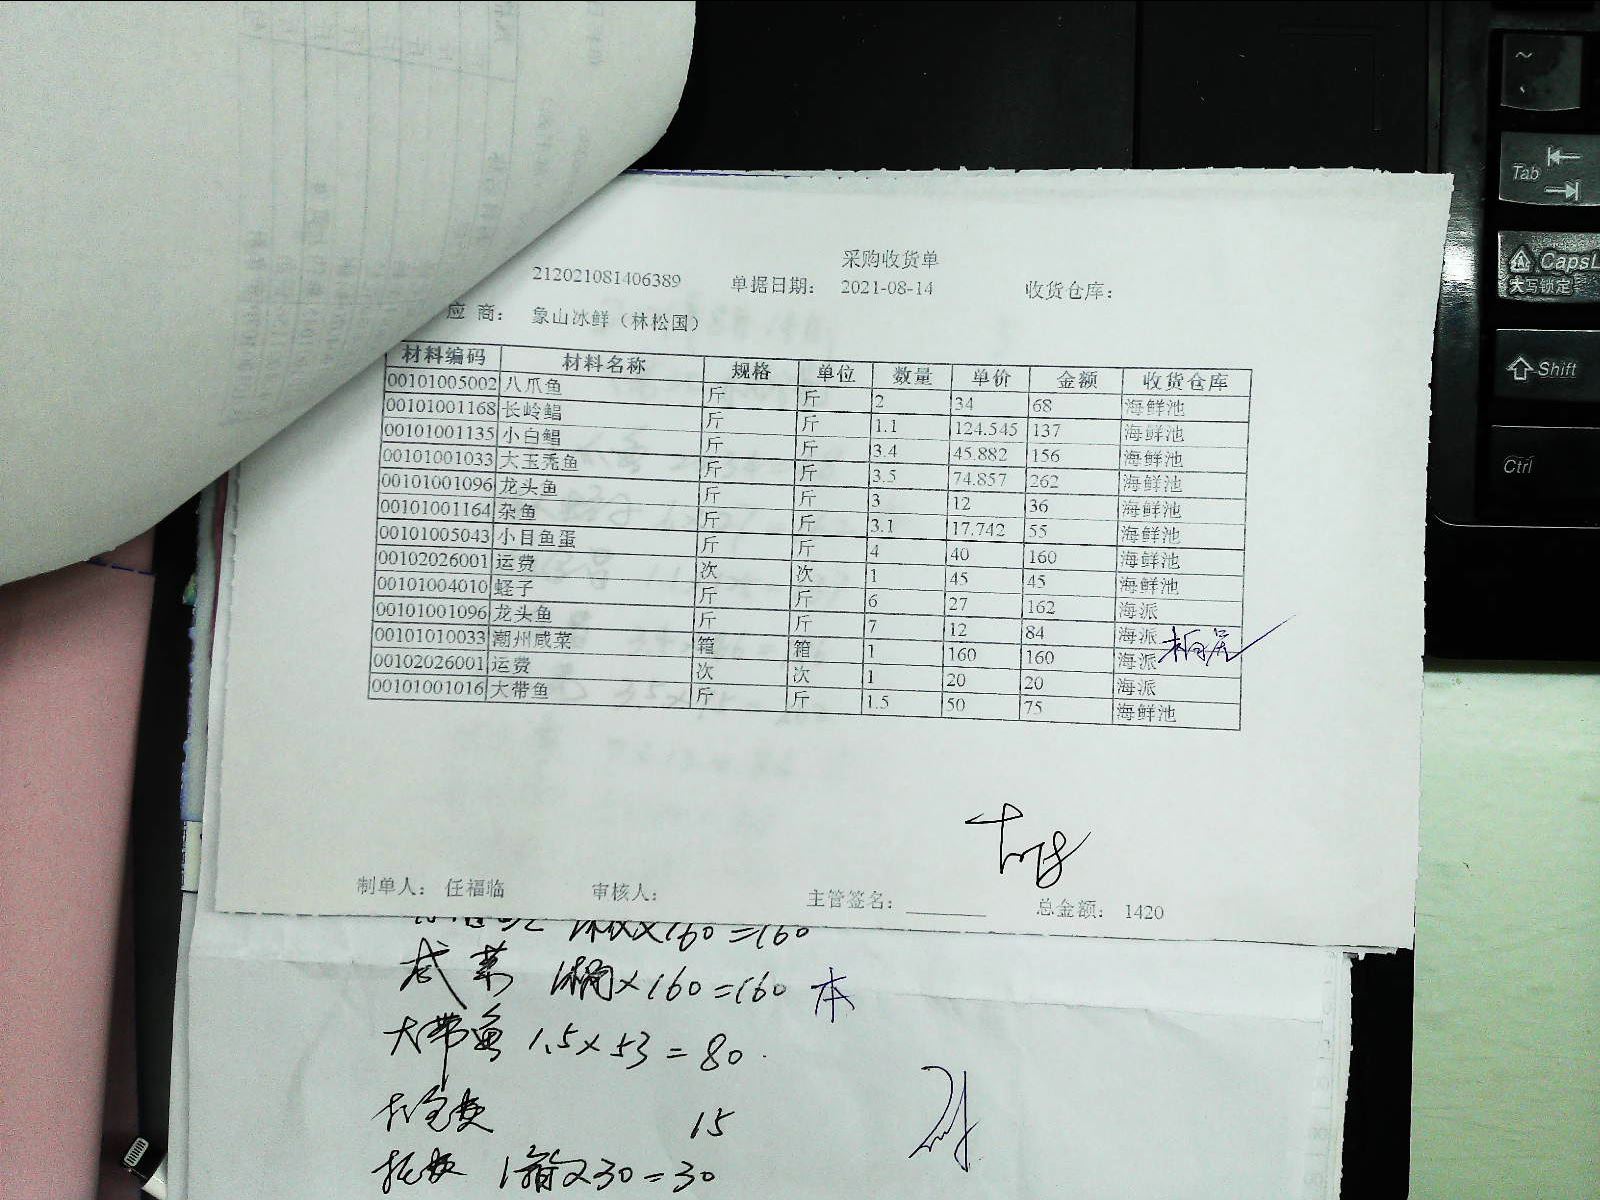 采购收货单
212021081406389 单据日期： 2021-08-14 收货仓库：
应 商： 象山冰鲜（林松国）
材料编码 材料名称 规格 单位 数量 单价 金额 收货仓库
00101005002 八爪鱼 斤 斤 2 34 68 海鲜池
00101001168 长岭鲳 斤 斤 1.1 124.545 137 海鲜池
00101001135 小白鲳 斤 斤 3.4 45.882 156 海鲜池
00101001033 大玉秃鱼 斤 斤 3.5 74.857 262 海鲜池
00101001096 龙头鱼 斤 斤 3 12 36 海鲜池
00101001164 杂鱼 斤 斤 3.1 17.742 55 海鲜池
00101005043 小目鱼蛋 斤 斤 4 40 160 海鲜池
00102026001 运费 次 次 1 45 45 海鲜池
00101004010 蛏子 斤 斤 6 27 162 海派
00101001096 龙头鱼 斤 斤 7 12 84 海派
00101010033 潮州咸菜 箱 箱 1 160 160 海派
00102026001 运费 次 次 1 20 20 海派
00101001016 大带鱼 斤 斤 1.5 50 75 海鲜池
制单人： 任福临 审核人： 主管签名： 总金额： 1420
x160=160
咸菜 1桶x160=160 本
大带鱼 1.5x53=80
15
1箱x30=30
~
Tab
CapsL
大写锁定
Shift
Ctrl